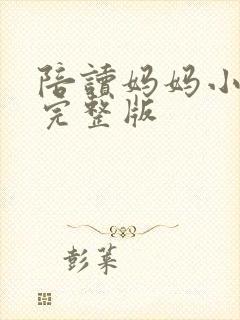 陪讀妈妈小
完整版
彭菜